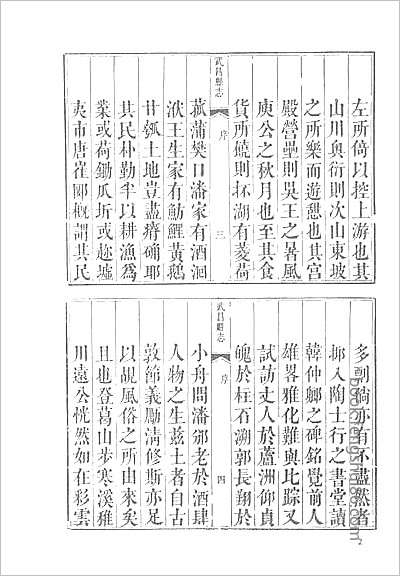 左所倚以控上游也其
山川奥衍則次山東坡
之所樂而遊憩也其宮
殿營壘則吳王之暑風
庾公之秋月也至其食
貨所饒則抔湖有菱荷
武昌縣志
序
三
菰蒲樊口潘家有酒洄
洑王生家有魴鯉黃鵝
甘瓠土地豈盡瘠确耶
其民朴勤半以耕漁為
業或荷鋤瓜圻或趂墟
夷市唐崔郾概謂其民
多剽猾亦有不盡然者
邨入陶士行之書堂讀
韓仲卿之碑銘覺前人
雄畧雅化難與比踪又
試訪丈人於蘆洲仰貞
魄於柱石溯郭長翔於
武昌縣志
序
四
小舟問潘邠老於酒肆
人物之生茲土者自古
敦節義勵清修斯亦足
以覘風俗之所由來矣
且也登葛山步寒溪雅
川遠公恍然如在彩雲